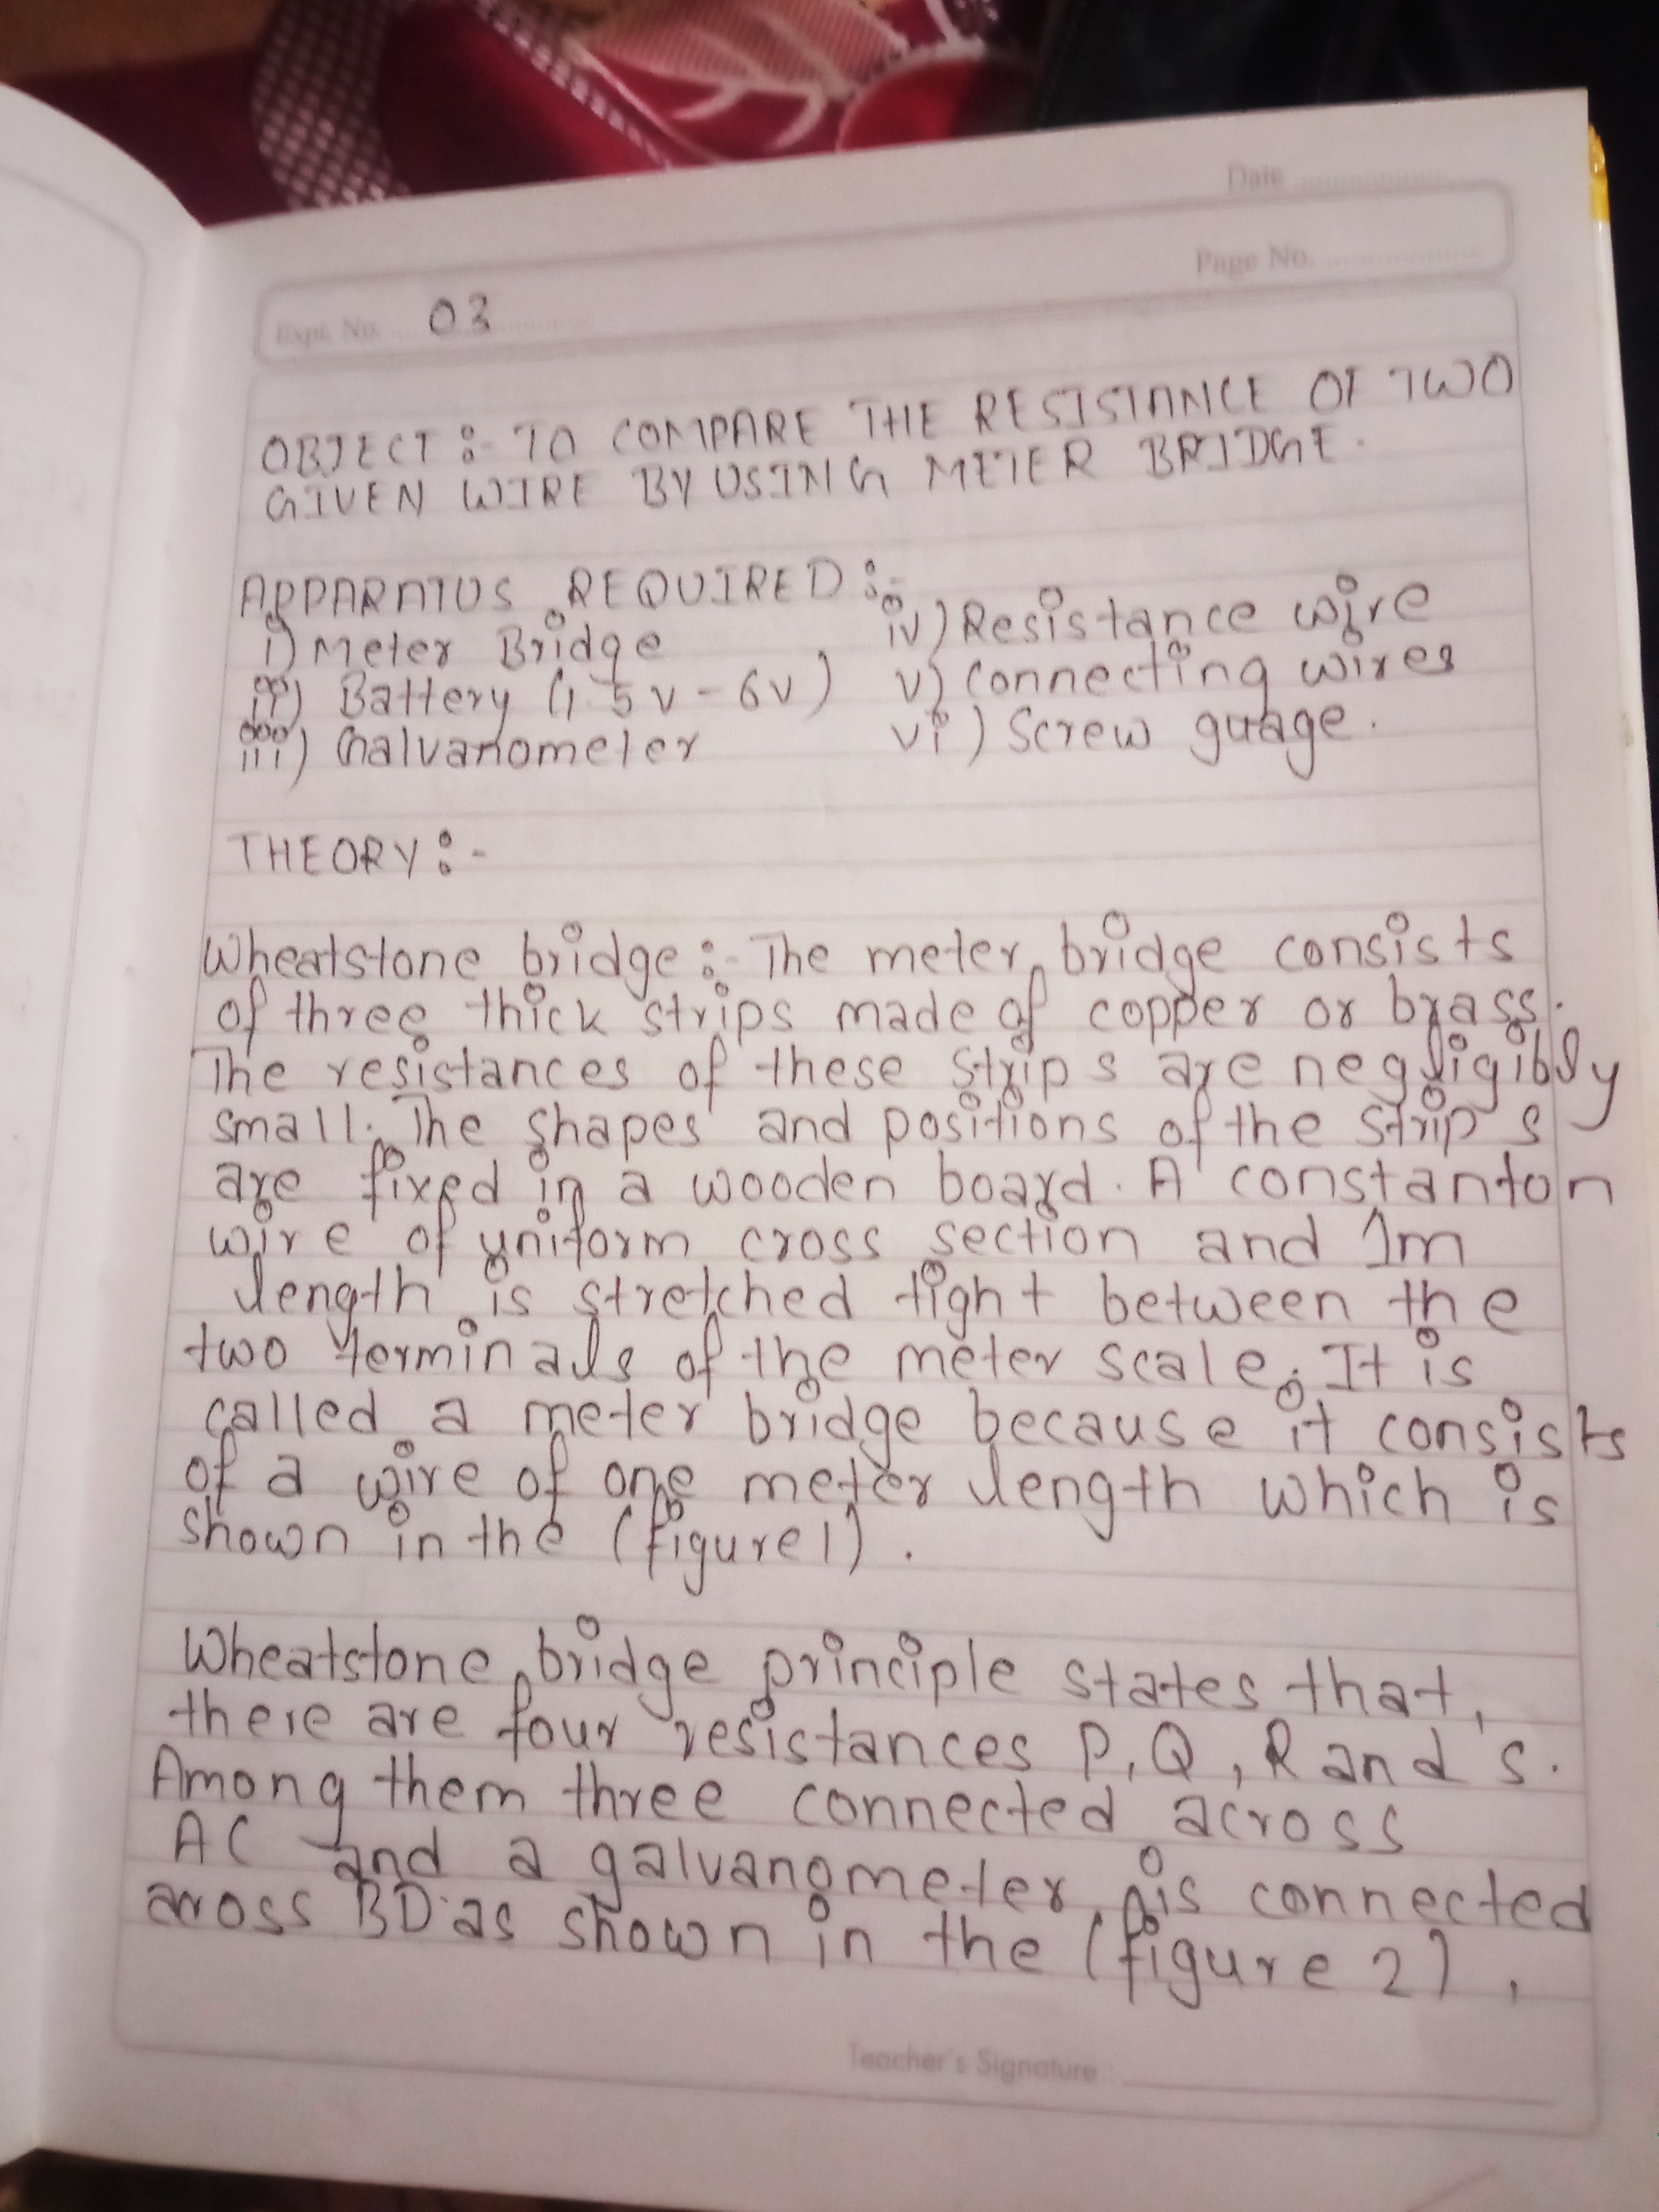 Date
Page No.
Expt. No. 03
OBJECT :- TO COMPARE THE RESISTANCE OF TWO
GIVEN WIRE BY USING METER BRIDGE.
APPARATUS REQUIRED :-
i) Meter Bridge
iv) Resistance wire
ii) Battery (1.5v - 6v)
v) Connecting wires
iii) Galvanometer
vi) Screw guage.
THEORY :-
Wheatstone bridge :- The meter bridge consists
of three thick strips made of copper or brass.
The resistances of these strips are negligibly
small. The shapes and positions of the strips
are fixed in a wooden board. A constanton
wire of uniform cross section and 1m
length is stretched tight between the
two terminals of the meter scale. It is
called a meter bridge because it consists
of a wire of one meter length which is
shown in the (figure 1).
Wheatstone bridge principle states that,
there are four resistances P, Q, R and S.
Among them three connected across
AC and a galvanometer is connected
aross BD as shown in the (figure 2).
Teacher's Signature :